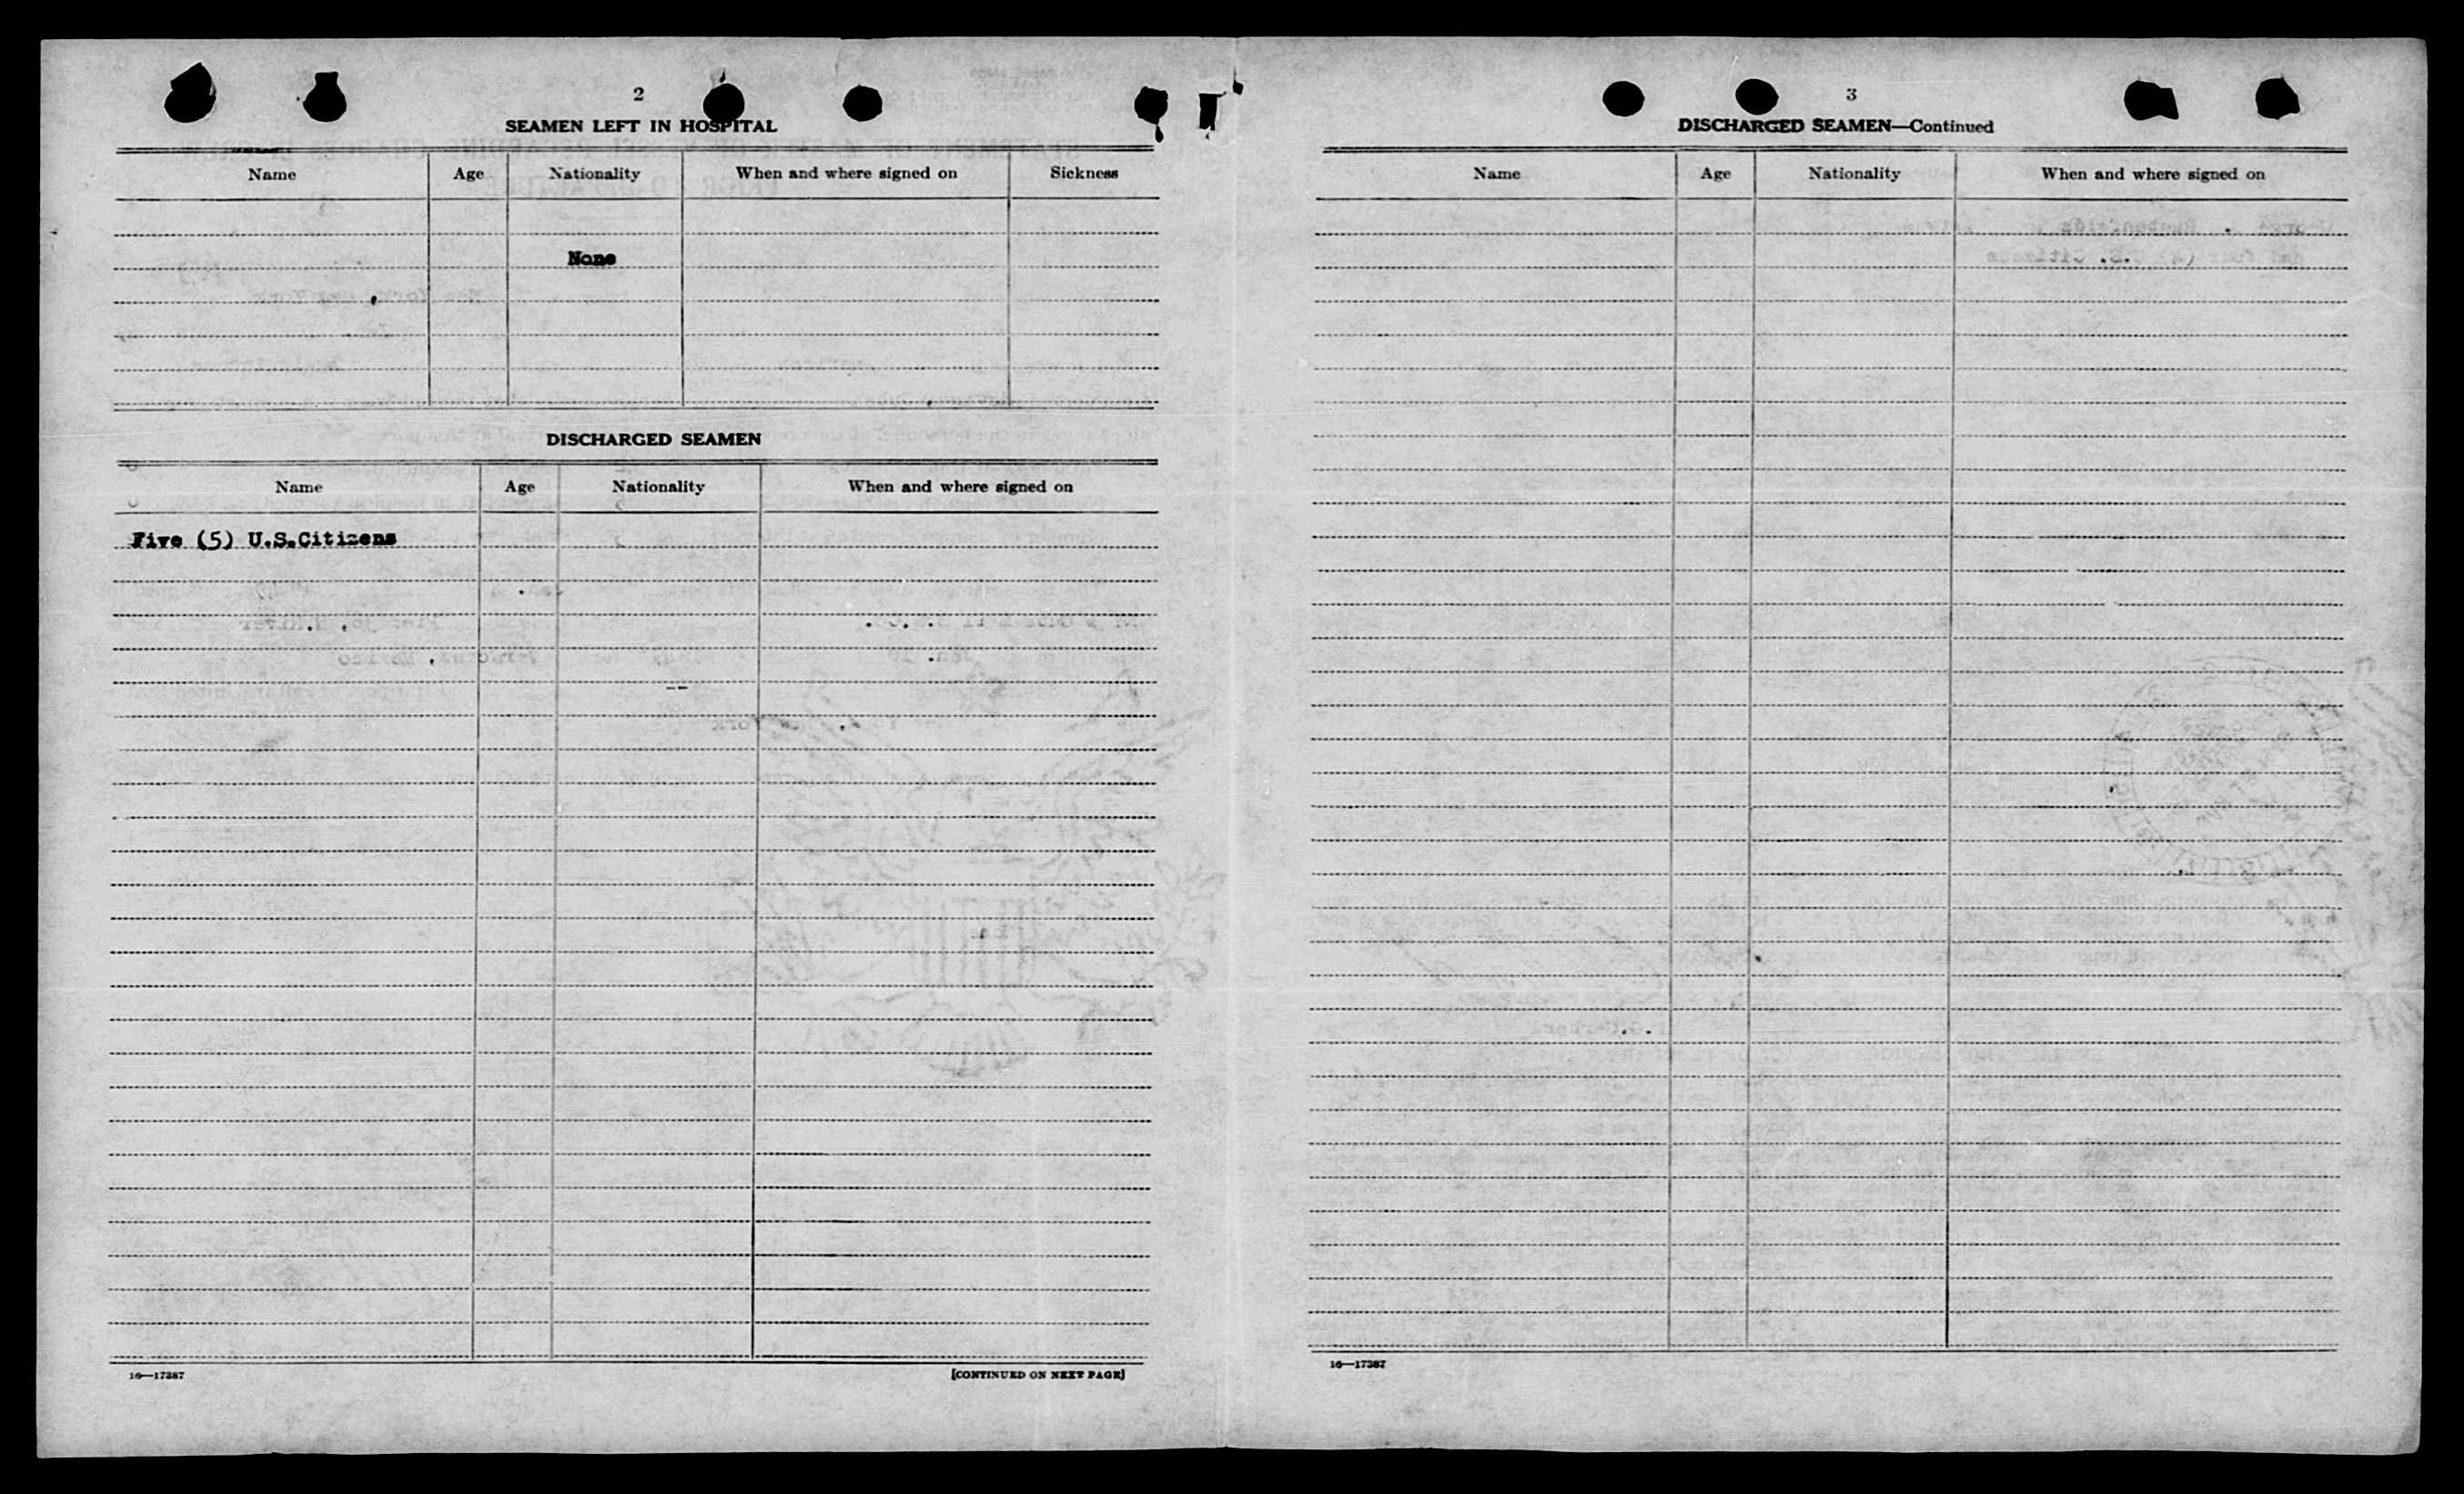 2
SEAMEN LEFT IN HOSPITAL
Name Age Nationality When and where signed on Sickness
None
DISCHARGED SEAMEN
Name Age Nationality When and where signed on
Five (5) U.S.Citizens
--
16—17387 [CONTINUED ON NEXT PAGE]
3
DISCHARGED SEAMEN—Continued
Name Age Nationality When and where signed on
16—17387